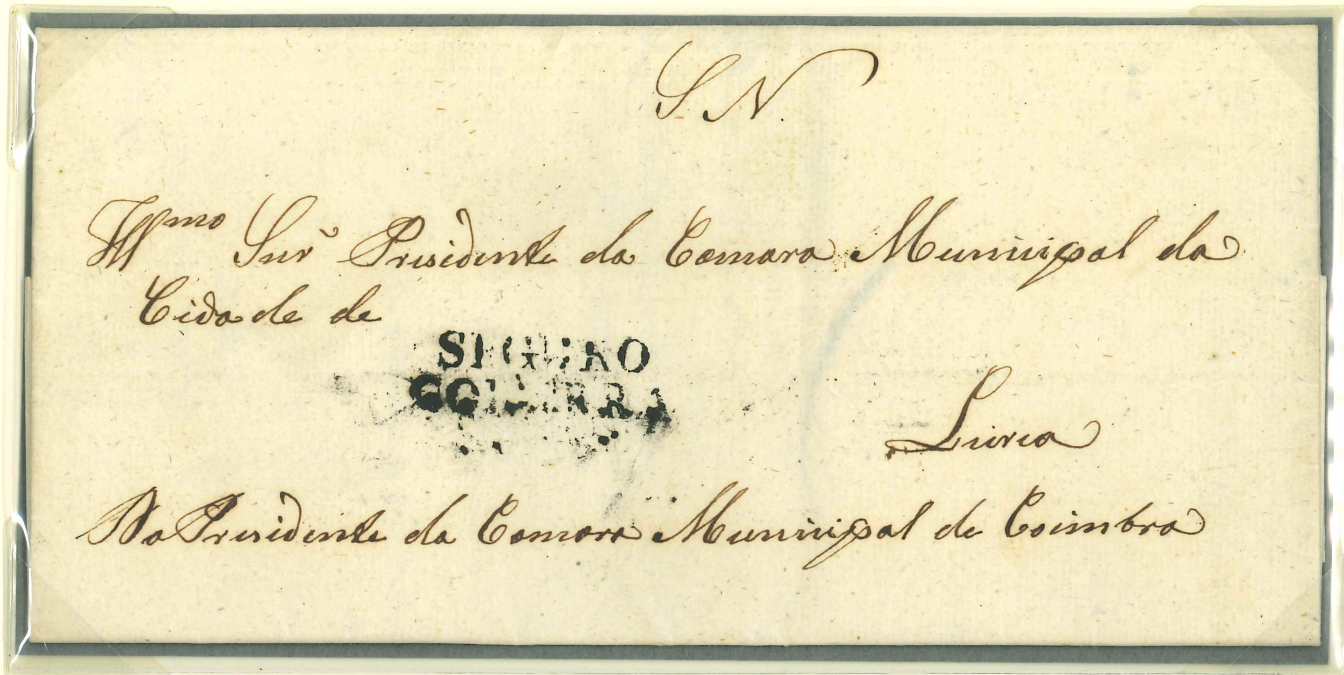 S N.
Illmo Snr Presidente da Camara Municipal da
Cidade de
SEGURO
COIMBRA
Leiria
Do Presidente da Camara Municipal de Coimbra